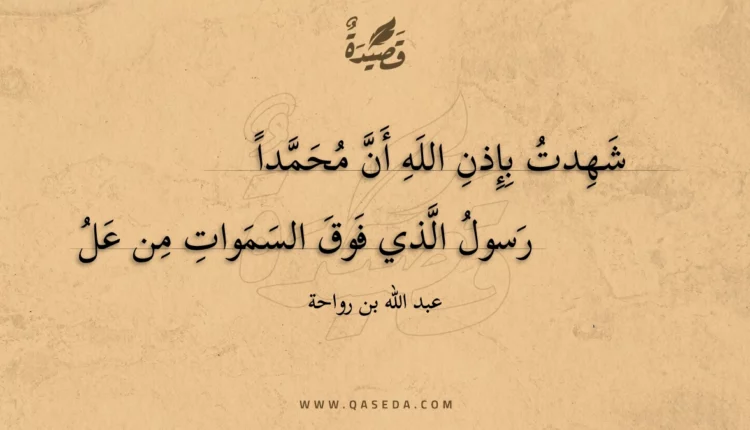 قَصِيدَةٌ
شَهِدتُ بِإِذنِ اللَهِ أَنَّ مُحَمَّداً
رَسولُ الَّذي فَوقَ السَمَواتِ مِن عَلُ
عبد الله بن رواحة
WWW.QASEDA.COM